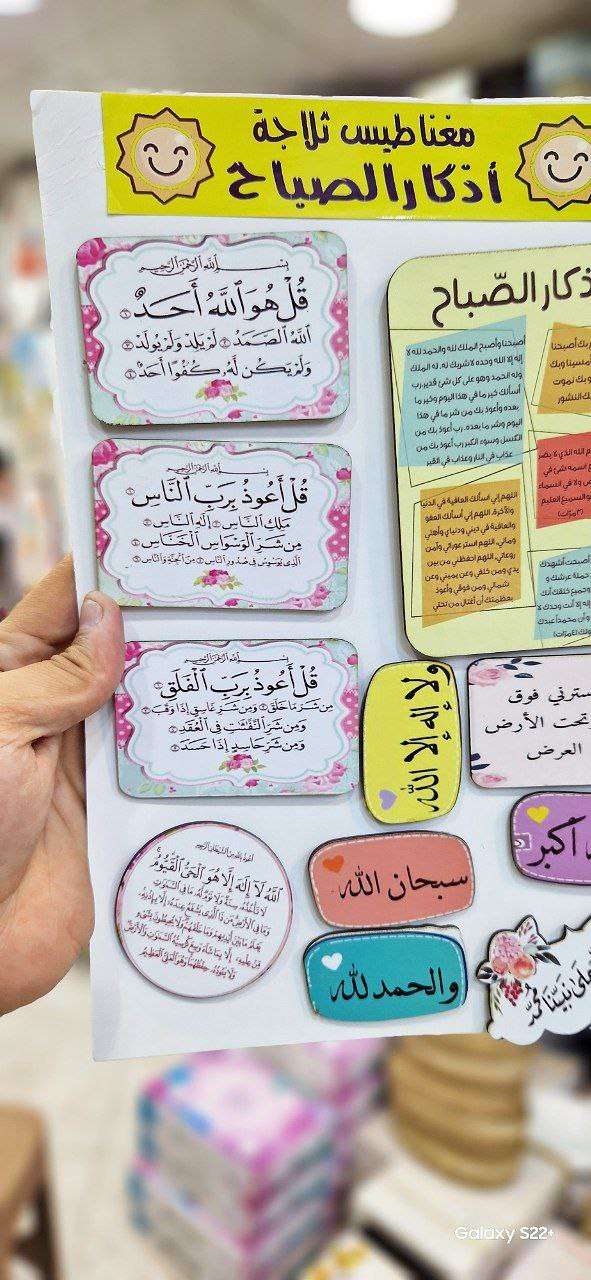 مغناطيس ثلاجة
أذكار الصباح
بسم الله الرحمن الرحيم
قُلْ هُوَ اللَّهُ أَحَدٌ ①
اللَّهُ الصَّمَدُ ② لَمْ يَلِدْ وَلَمْ يُولَدْ ③
وَلَمْ يَكُن لَّهُ كُفُوًا أَحَدٌ ④
بسم الله الرحمن الرحيم
قُلْ أَعُوذُ بِرَبِّ النَّاسِ ①
مَلِكِ النَّاسِ ② إِلَٰهِ النَّاسِ ③
مِن شَرِّ الْوَسْوَاسِ الْخَنَّاسِ ④
الَّذِي يُوَسْوِسُ فِي صُدُورِ النَّاسِ ⑤ مِنَ الْجِنَّةِ وَالنَّاسِ ⑥
بسم الله الرحمن الرحيم
قُلْ أَعُوذُ بِرَبِّ الْفَلَقِ ①
مِن شَرِّ مَا خَلَقَ ② وَمِن شَرِّ غَاسِقٍ إِذَا وَقَبَ ③
وَمِن شَرِّ النَّفَّاثَاتِ فِي الْعُقَدِ ④
وَمِن شَرِّ حَاسِدٍ إِذَا حَسَدَ ⑤
أعوذ بالله من الشيطان الرجيم
اللَّهُ لَا إِلَٰهَ إِلَّا هُوَ الْحَيُّ الْقَيُّومُ
لَا تَأْخُذُهُ سِنَةٌ وَلَا نَوْمٌ لَّهُ مَا فِي السَّمَوَاتِ
وَمَا فِي الْأَرْضِ مَن ذَا الَّذِي يَشْفَعُ عِندَهُ إِلَّا بِإِذْنِهِ
يَعْلَمُ مَا بَيْنَ أَيْدِيهِمْ وَمَا خَلْفَهُمْ وَلَا يُحِيطُونَ بِشَيْءٍ
مِّنْ عِلْمِهِ إِلَّا بِمَا شَاءَ وَسِعَ كُرْسِيُّهُ السَّمَوَاتِ وَالْأَرْضَ
وَلَا يَئُودُهُ حِفْظُهُمَا وَهُوَ الْعَلِيُّ الْعَظِيمُ
ذكار الصّباح
أصبحنا وأصبح الملك لله والحمد لله لا
إله إلا الله وحده لا شريك له، له الملك
وله الحمد وهو على كل شئ قدير، رب
أسألك خير ما في هذا اليوم وخير ما
بعده وأعوذ بك من شر ما في هذا
اليوم وشر ما بعده، رب أعوذ بك من
الكسل وسوء الكبر رب أعوذ بك من
عذاب في النار وعذاب في القبر
اللهم إني أسألك العافية في الدنيا
والآخرة، اللهم إني أسألك العفو
والعافية في ديني ودنياي وأهلي
ومالي، اللهم استر عوراتي وآمن
روعاتي، اللهم احفظني من بين
يدي ومن خلفي وعن يميني وعن
شمالي ومن فوقي وأعوذ
بعظمتك أن أغتال من تحتي
بك أصبحنا
أمسينا وبك
بك نموت
النشور
الله الذي لا يضر
اسمه شئ في
ولا في السماء
السميع العليم
أصبحت أشهدك
حملة عرشك و
وجميع خلقك أنك
إله إلا أنت وحدك لا
وأن محمدا عبدك
ولا إله إلا الله
سترني فوق
تحت الأرض
العرض
أكبر
سبحان الله
والحمد لله
على نبينا محمد
Galaxy S22+